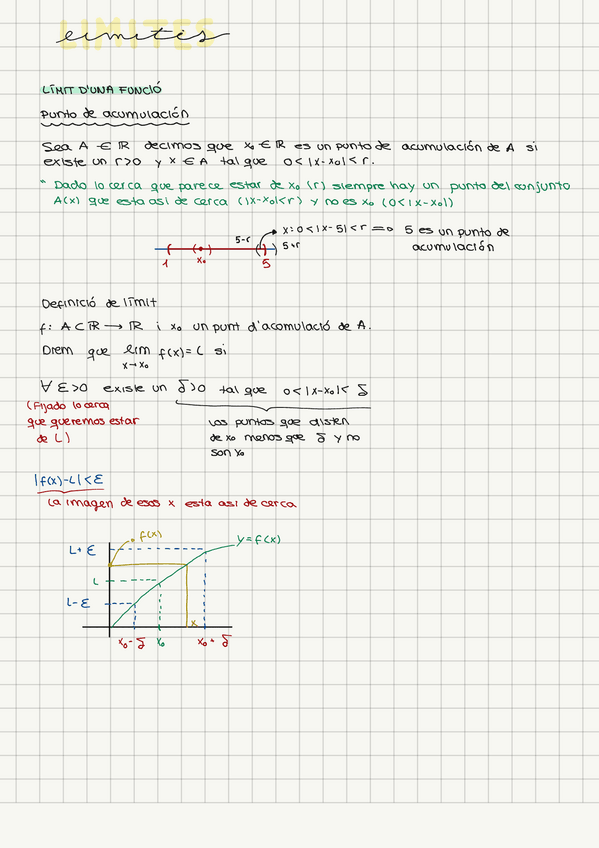 LIMITES
limites
LÍMIT D'UNA FUNCIÓ
Punto de acumulación
Sea A ∈ ℝ decimos que x₀ ∈ ℝ es un punto de acumulación de A si
existe un r>0 y x ∈ A tal que 0<|x-x₀|<r.
* Dado lo cerca que parece estar de x₀ (r) siempre hay un punto del conjunto
A(x) que esta asi de cerca (|x-x₀|<r) y no es x₀ (0<|x-x₀|)
x: 0<|x-5|<r ⇒ 5 es un punto de
acumulación
5-r
5+r
1 x₀ 5
Definició de límit
f: A⊂ℝ → ℝ i x₀ un punt d'acomulació de A.
Direm que lim f(x)=L si
x→x₀
∀ε>0 existe un δ>0 tal que 0<|x-x₀|<δ
(Fijado lo cerca
que queremos estar
de L)
Los puntos que disten
de x₀ menos que δ y no
son x₀
|f(x)-L|<ε
La imagen de esos x esta asi de cerca
f(x)
y=f(x)
L+ε
L
L-ε
x
x₀-δ x₀ x₀+δ